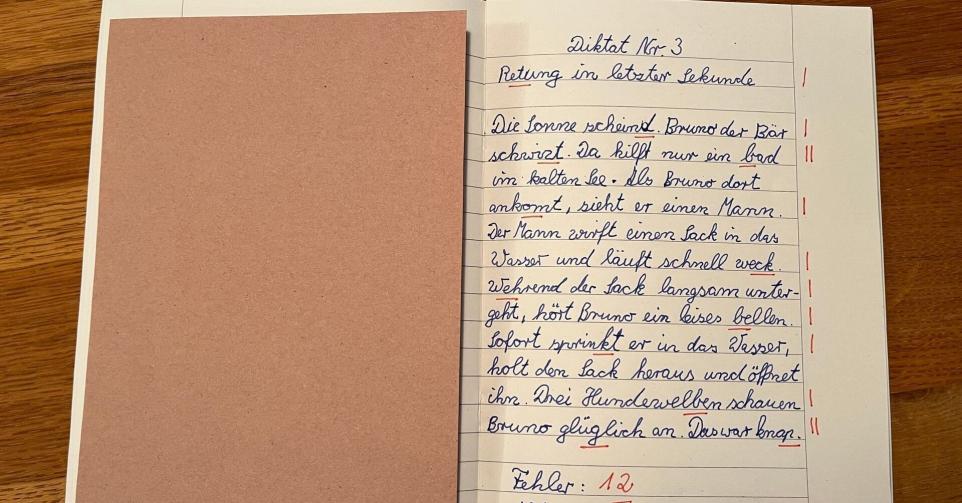 Diktat Nr. 3
Retung in letzter Sekunde
Die Sonne scheind. Bruno der Bär
schwizt. Da hilft nur ein bad
im kalten See. Als Bruno dort
ankomt, sieht er einen Mann.
Der Mann wirft einen Sack in das
Wasser und läuft schnell weck.
Wehrend der Sack langsam unter-
geht, hört Bruno ein leises bellen.
Sofort sprinkt er in das Wasser,
holt den Sack heraus und öffnet
ihn. Drei Hundewelben schauen
Bruno glüglich an. Das war knap.
Fehler: 12